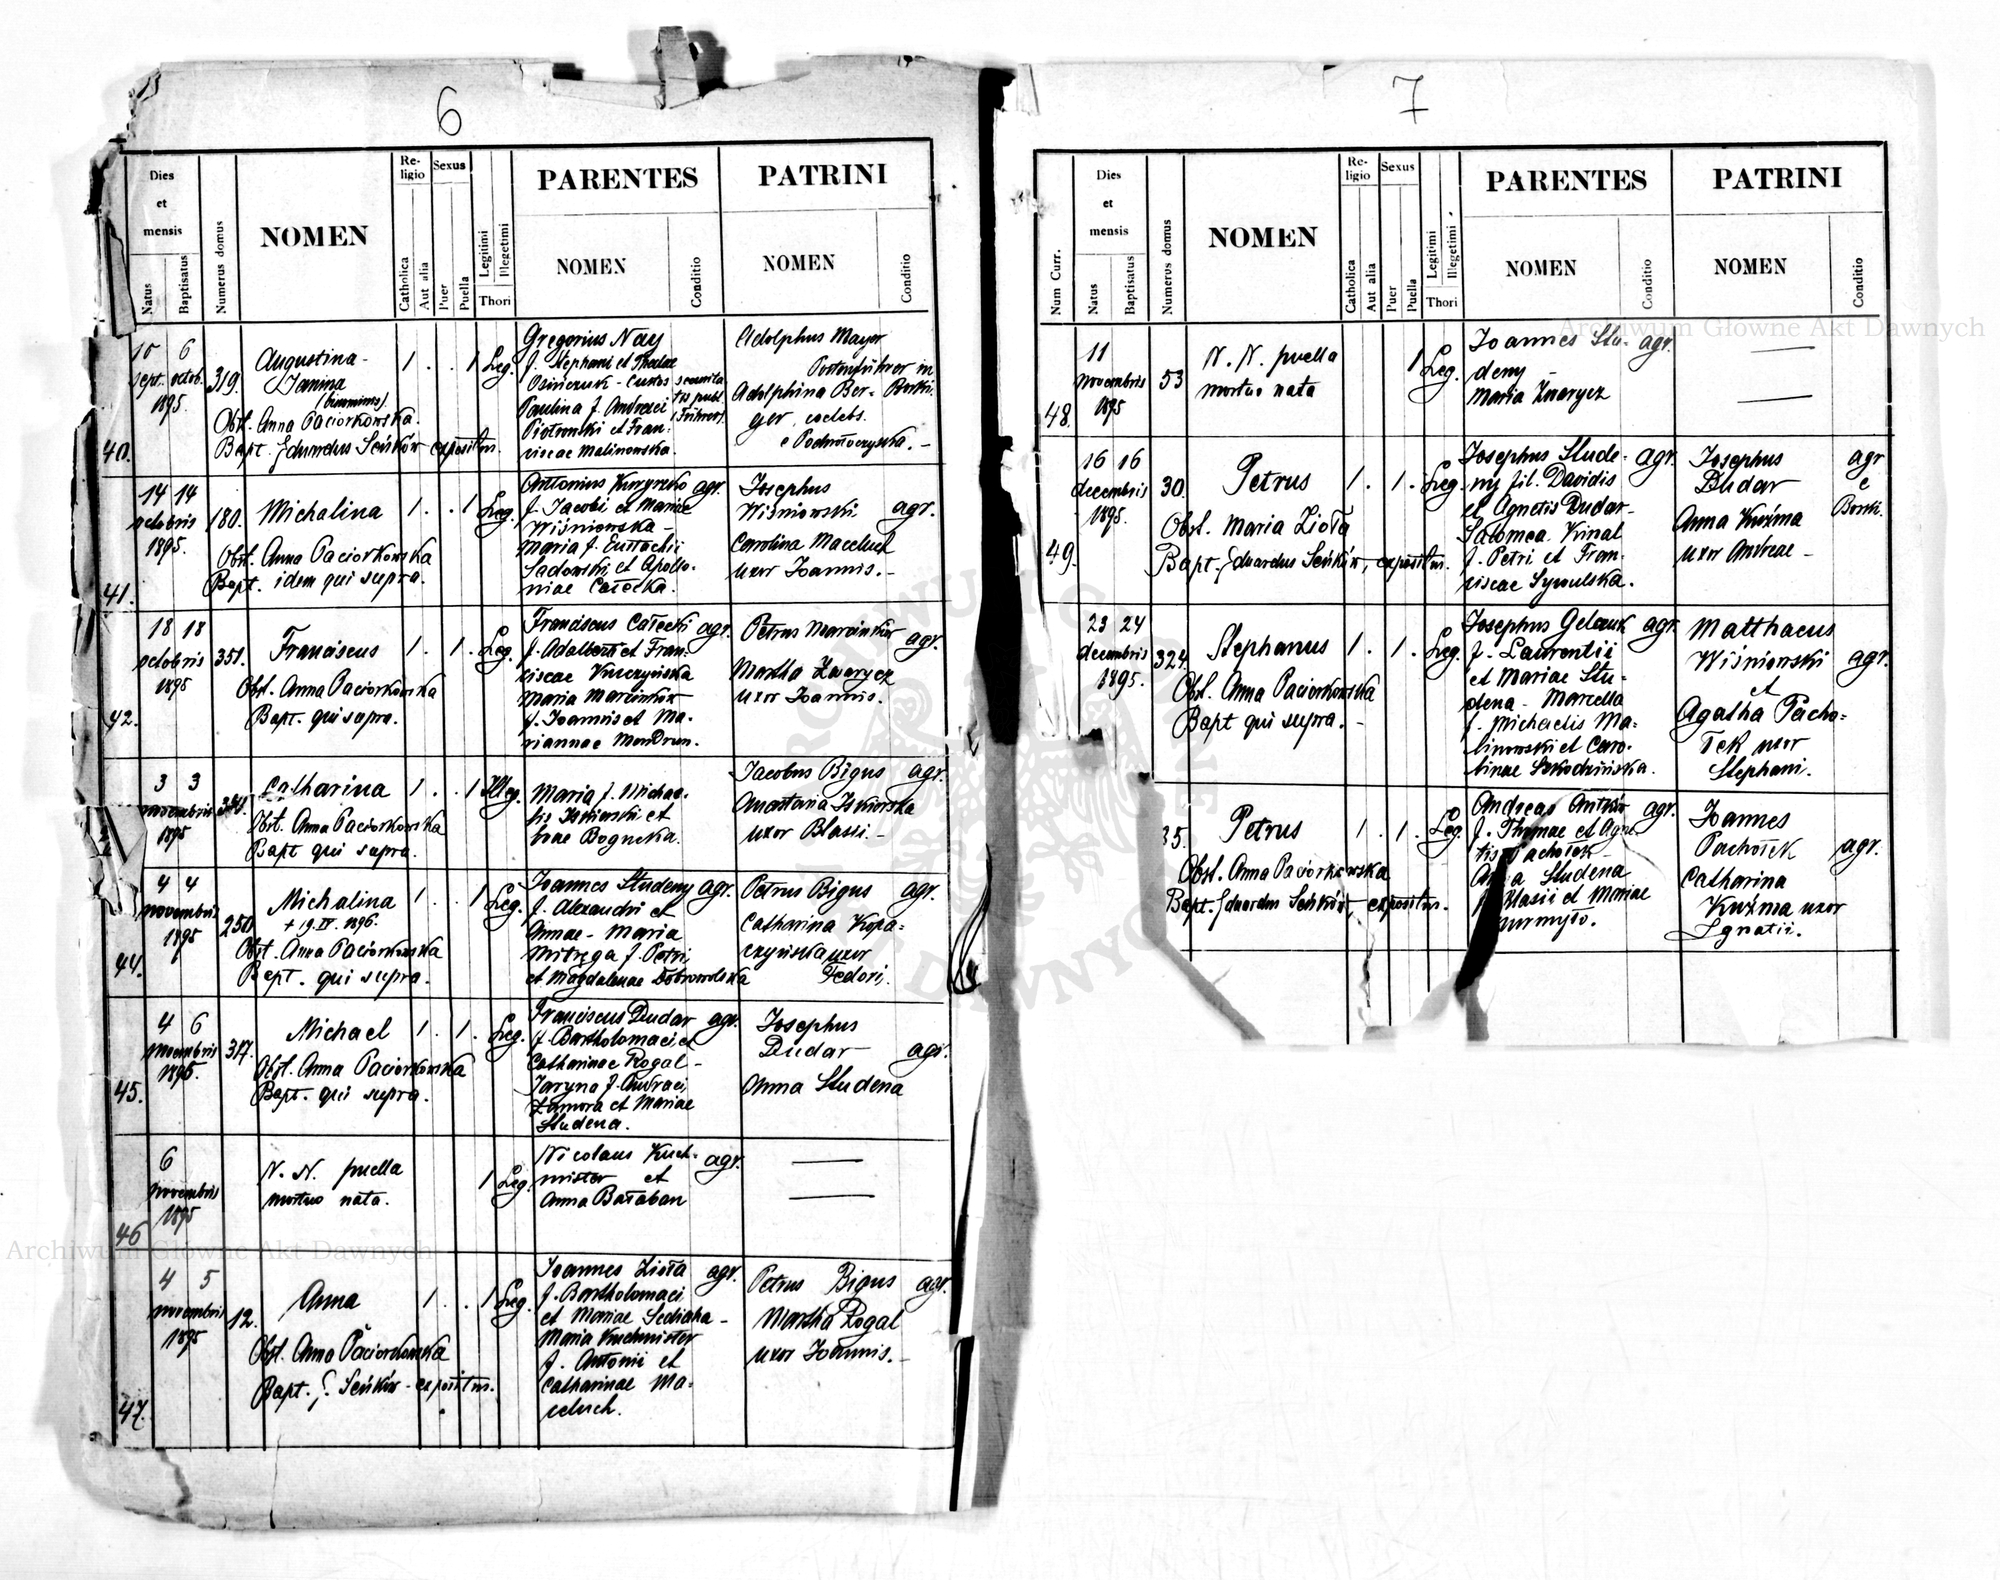 6
Dies
et
mensis
Natus
Baptisatus
Numerus domus
NOMEN
Religio
Catholica
Aut alia
Sexus
Puer
Puella
Legitimi
Illegetimi
Thori
PARENTES
NOMEN
Conditio
PATRINI
NOMEN
Conditio
40.
15 6
sept. octob.
1895.
319.
Augustina-
Janina
(binominis).
Obst. Anna Paciorkowska.
Bapt. Edmundus Seńków expositus.
1 . . 1 Leg.
Gregorius Nay
f. Stephani et Theclae
Paulina f. Andreei
Piotrowski et Fran-
ciscae Malinowska.
Adolphus Mayer
Postenführer in
Borki.
Adolphina Ber-
ger, coelebs.
e Podwołoczyska. -
41.
14 14
octobris
1895.
180.
Michalina
Obst. Anna Paciorkowska
Bapt. idem qui supra.
1 . . 1 Leg.
Antonius
agr.
f. Jacobi et Mariae
Wiśniowska -
Maria f. Eustachii
Sadowski et Apollo-
niae Całecka.
Josephus
Wiśniowski
agr.
Carolina Maceluch
uxor Joannis. -
42.
18 18
octobris
1895
351.
Franciscus
Obst. Anna Paciorkowska
Bapt. qui supra.
1 . 1 . Leg.
Franciscus Całecki
agr.
f. Adalberti et Fran-
ciscae Kurczyńska
Maria Marcinków
f. Joannis et Ma-
riannae Mondrun.
Petrus Marcinków
agr.
Martha Zwarycz
uxor Joannis.
3 3
novembris
1895
Catharina
Obst. Anna Paciorkowska
Bapt. qui supra.
1 . . 1 Illeg.
Maria f. Michae-
lis Iskierski et
Bognicka.
Jacobus Bigus
agr.
Anastasia Iskierska
uxor Blasii. -
44.
4 4
novembris
1895
250.
Michalina
+ 19.IV. 1896.
Obst. Anna Paciorkowska
Bapt. qui supra.
1 . . 1 Leg.
Joannes Studeny
agr.
f. Alexandri et
Annae - Maria
Mitręga f. Petri
et Magdalenae Dobrowolska
Petrus Bigus
agr.
Catharina Kopa-
czyńska uxor
Fedori.
45.
4 6
novembris
1895.
317.
Michael
Obst. Anna Paciorkowska
Bapt. qui supra.
1 . 1 . Leg.
Franciscus Dudar
agr.
f. Bartholomaei et
Catharinae Rogal -
Taryna f. Andraei
Zamora et Mariae
Studena.
Josephus
Dudar
agr.
Anna Studena
46
6
novembris
1895
N. N. puella
mortuo nata.
1 Leg.
Nicolaus Kuch-
agr.
mister et
Anna Bałaban
47.
4 5
novembris
1895
12.
Anna
Obst. Anna Paciorkowska
Bapt. E. Seńków - expositus.
1 . . 1 Leg.
Joannes Zioła
agr.
f. Bartholomaei
et Mariae Sediaha -
Maria Kuchmister
f. Antonii et
Catharinae Ma-
celuch.
Petrus Bigus
agr.
Martha Rogal
uxor Joannis. -
7
Num Curr.
Dies
et
mensis
Natus
Baptisatus
Numerus domus
NOMEN
Religio
Catholica
Aut alia
Sexus
Puer
Puella
Legitimi
Illegetimi
Thori
PARENTES
NOMEN
Conditio
PATRINI
NOMEN
Conditio
48.
11
novembris
1895
53
N. N. puella
mortuo nata
1 Leg.
Joannes Stu-
agr.
deny -
Maria Zwarycz
49.
16 16
decembris
1895.
30.
Petrus
Obst. Maria Zioła
Bapt. Eduardus Seńków, expositus.
1 . 1 . Leg.
Josephus Stude-
agr.
ny fil. Davidis
et Agnetis Dudar -
Salomea Kinal
f. Petri et Fran-
ciscae Sywulska.
Josephus
Dudar
agr
e
Borki.
Anna Kuźma
uxor Andreae -
23 24
decembris
1895.
324.
Stephanus
Obst. Anna Paciorkowska
Bapt qui supra. -
1 . 1 . Leg.
Josephus
agr.
f. Laurentii
et Mariae Stu-
dena - Marcella
f. Michaelis Ma-
linowski et Caro-
linae Szkodzińska.
Matthaeus
Wiśniowski
agr.
et
Agatha Pacho-
łek uxor
Stephani.
35.
Petrus
Obst. Anna Paciorkowska
Bapt. Eduardus Seńków, expositus.
1 . 1 . Leg.
Andreas Antków
agr.
f. Thomae et Agne-
tis Pachołek
Studena
Blasii et Mariae
Joannes
Pachołek
agr.
Catharina
Kuźma uxor
Ignatii.
Archiwum Główne Akt Dawnych
Archiwum Główne Akt Dawnych